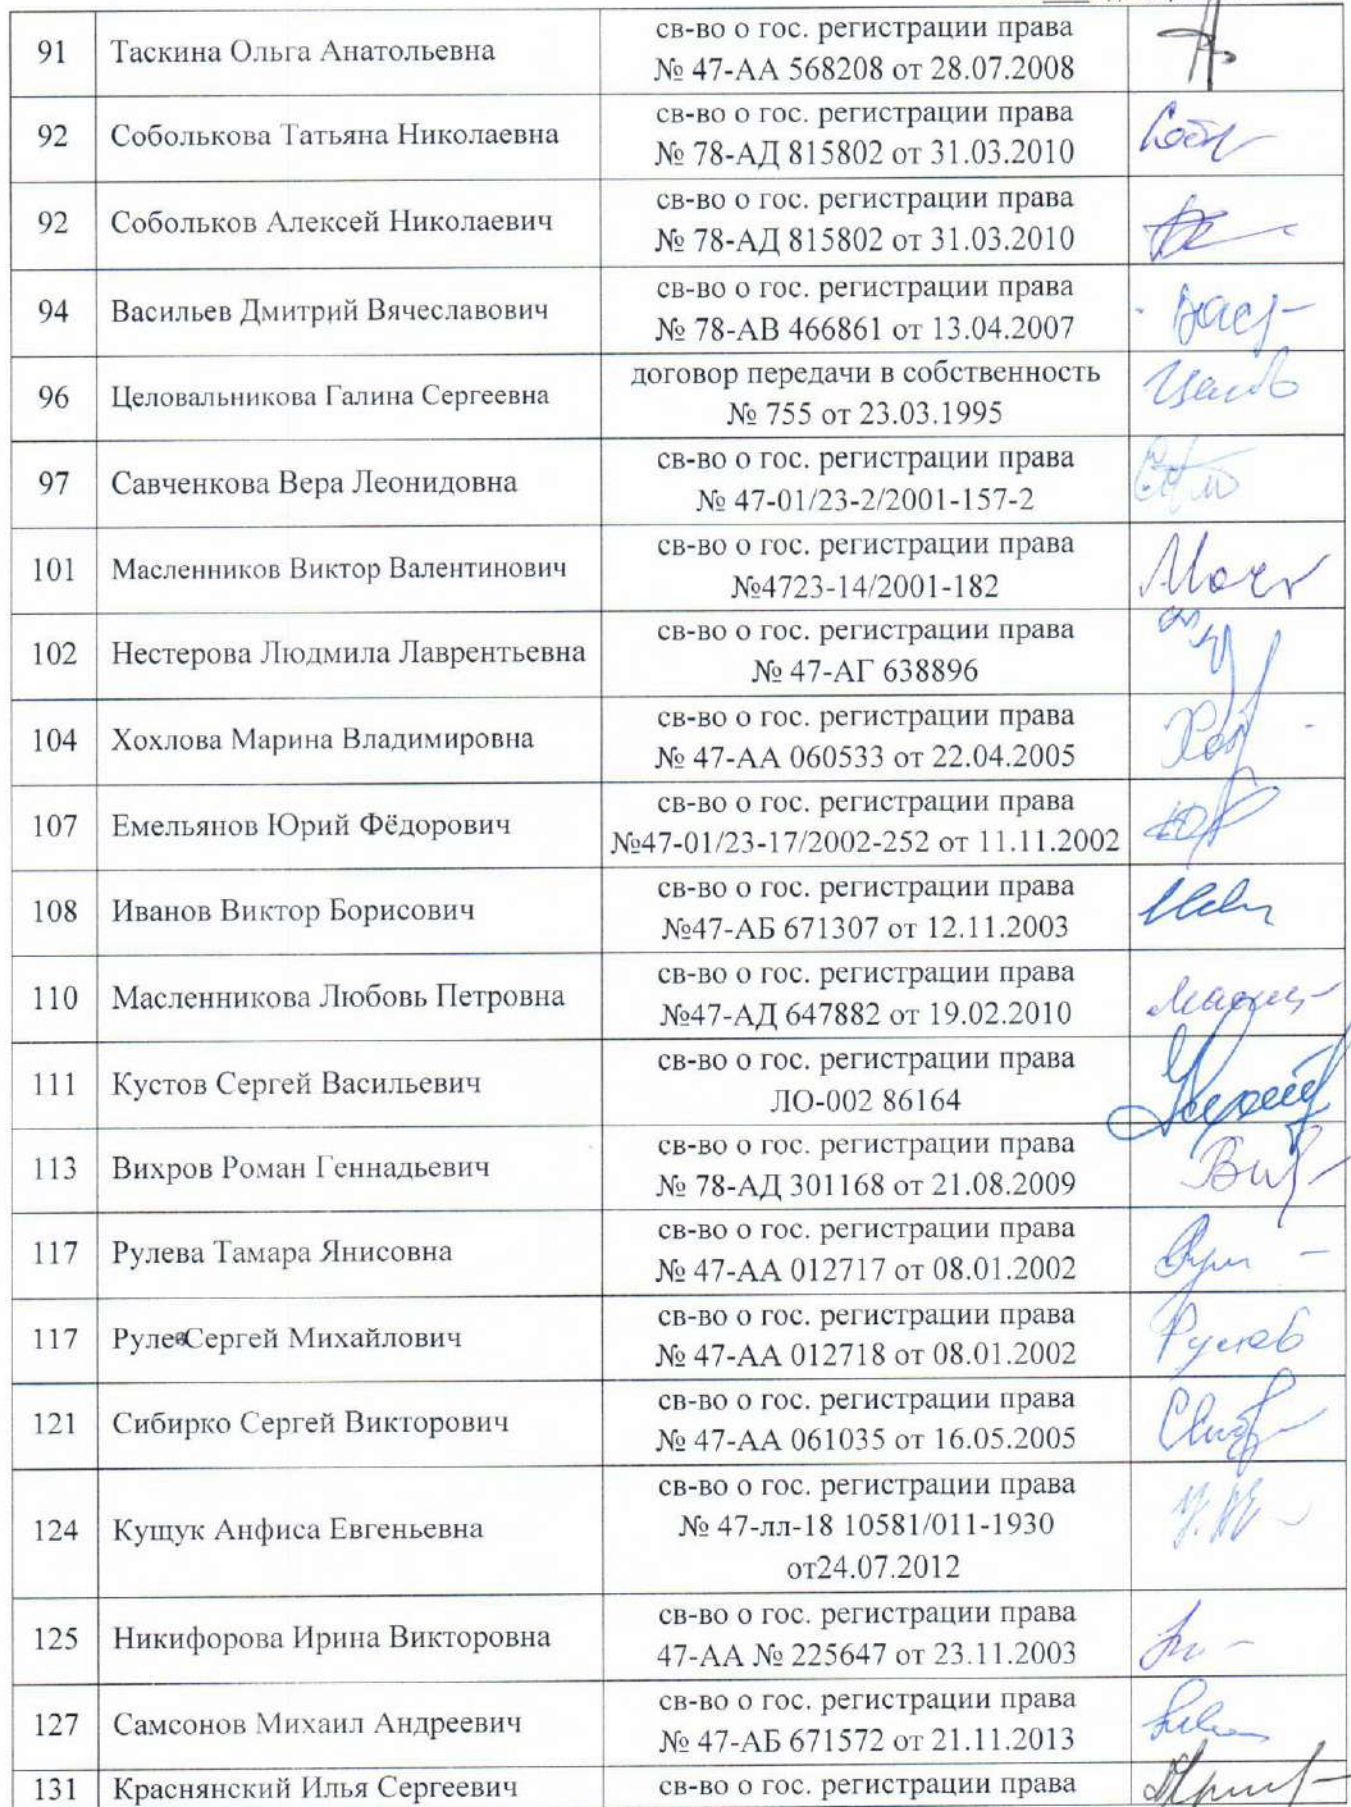 91 Таскина Ольга Анатольевна св-во о гос. регистрации права
№ 47-АА 568208 от 28.07.2008
92 Соболькова Татьяна Николаевна св-во о гос. регистрации права
№ 78-АД 815802 от 31.03.2010
92 Собольков Алексей Николаевич св-во о гос. регистрации права
№ 78-АД 815802 от 31.03.2010
94 Васильев Дмитрий Вячеславович св-во о гос. регистрации права
№ 78-АВ 466861 от 13.04.2007
96 Целовальникова Галина Сергеевна договор передачи в собственность
№ 755 от 23.03.1995
97 Савченкова Вера Леонидовна св-во о гос. регистрации права
№ 47-01/23-2/2001-157-2
101 Масленников Виктор Валентинович св-во о гос. регистрации права
№4723-14/2001-182
102 Нестерова Людмила Лаврентьевна св-во о гос. регистрации права
№ 47-АГ 638896
104 Хохлова Марина Владимировна св-во о гос. регистрации права
№ 47-АА 060533 от 22.04.2005
107 Емельянов Юрий Фёдорович св-во о гос. регистрации права
№47-01/23-17/2002-252 от 11.11.2002
108 Иванов Виктор Борисович св-во о гос. регистрации права
№47-АБ 671307 от 12.11.2003
110 Масленникова Любовь Петровна св-во о гос. регистрации права
№47-АД 647882 от 19.02.2010
111 Кустов Сергей Васильевич св-во о гос. регистрации права
ЛО-002 86164
113 Вихров Роман Геннадьевич св-во о гос. регистрации права
№ 78-АД 301168 от 21.08.2009
117 Рулева Тамара Янисовна св-во о гос. регистрации права
№ 47-АА 012717 от 08.01.2002
117 Рулев Сергей Михайлович св-во о гос. регистрации права
№ 47-АА 012718 от 08.01.2002
Рулев
121 Сибирко Сергей Викторович св-во о гос. регистрации права
№ 47-АА 061035 от 16.05.2005
124 Кущук Анфиса Евгеньевна св-во о гос. регистрации права
№ 47-лл-18 10581/011-1930
от24.07.2012
125 Никифорова Ирина Викторовна св-во о гос. регистрации права
47-АА № 225647 от 23.11.2003
127 Самсонов Михаил Андреевич св-во о гос. регистрации права
№ 47-АБ 671572 от 21.11.2013
131 Краснянский Илья Сергеевич св-во о гос. регистрации права